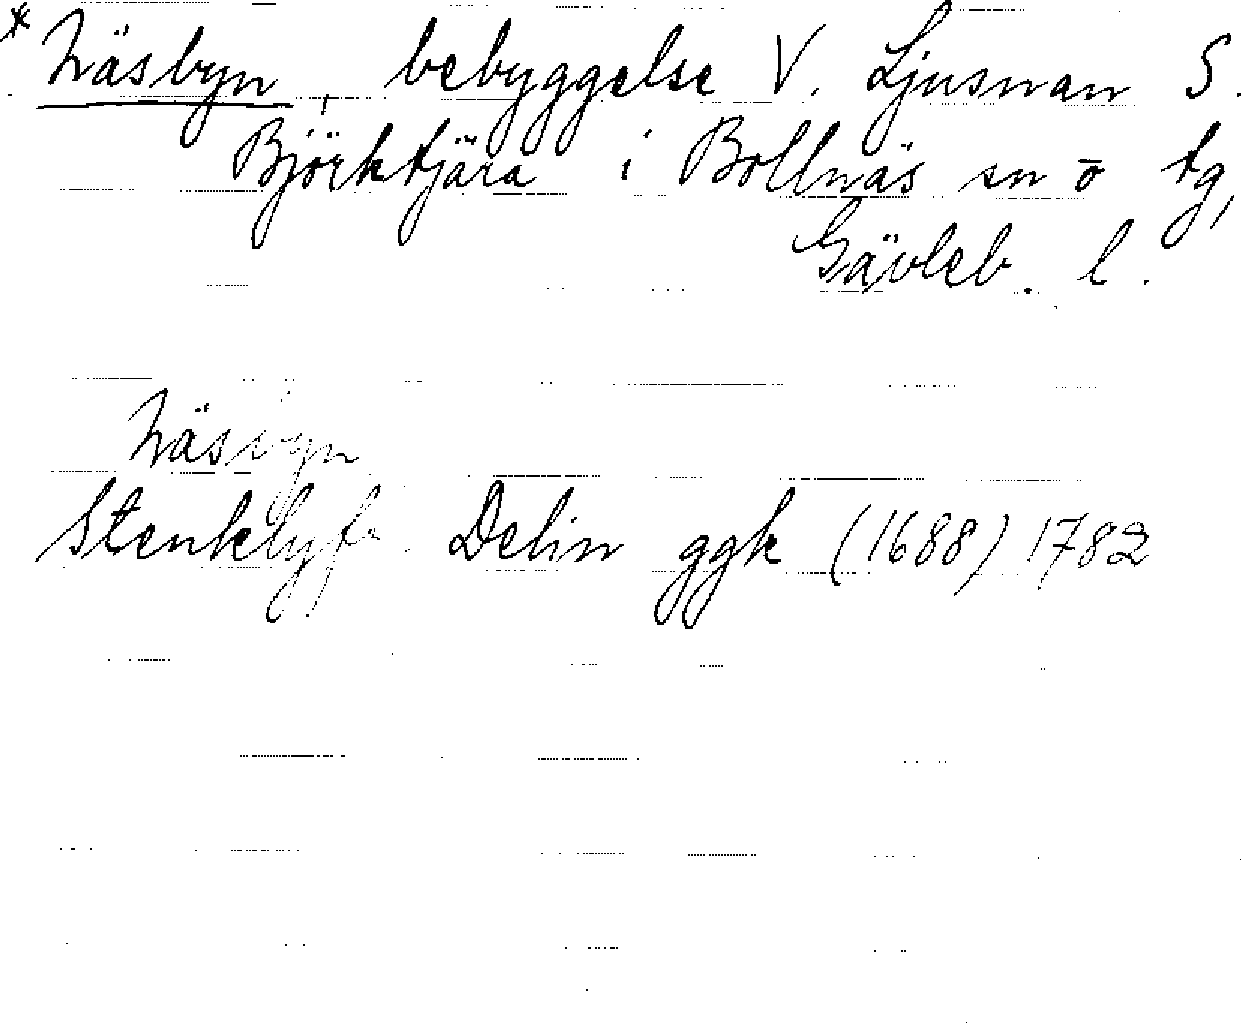 * Näsbyn, bebyggelse V. Ljusnan S.
Björktjära i Bollnäs sn o tg,
Gävleb. l.
Näsbyn
Stenklyft Delin ggk (1688) 1782